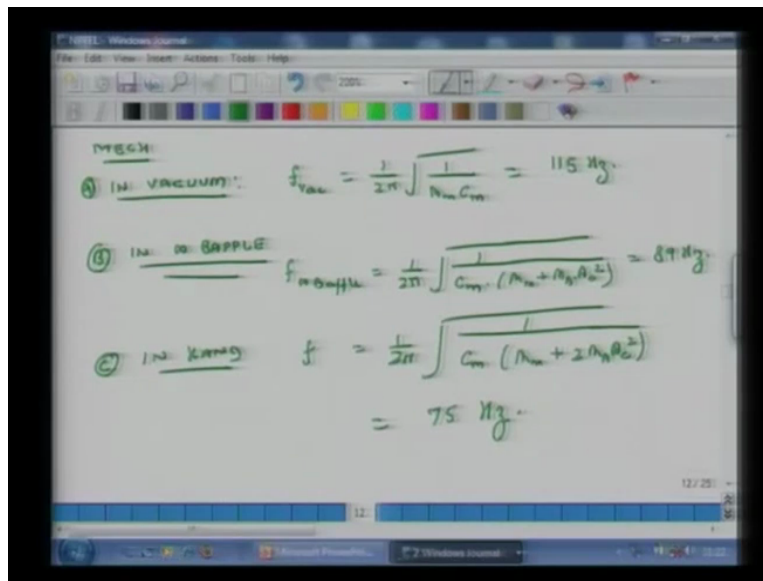 NPTEL - Windows Journal
File Edit View Insert Actions Tools Help
200%
MECH
Ⓐ IN VACUUM: f_vac = 1/2π √(1/(M_m C_m)) = 115 Hz.
Ⓑ IN ∞ BAFFLE f_∞ Baffle = 1/2π √(1/(C_m (M_m + M_A A_c²))) = 89 Hz.
Ⓒ IN f = 1/2π √(1/(C_m (M_m + 2 M_A A_c²)))
= 75 Hz.
12 / 25
12
Microsoft PowerPo... 2 Windows Journal